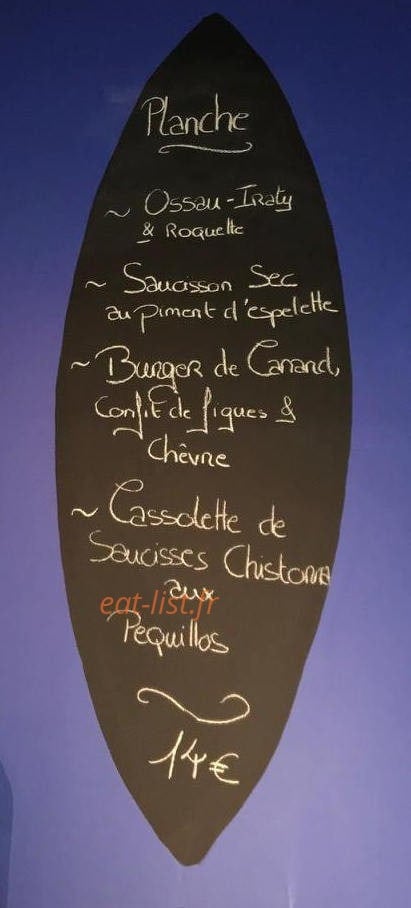 Planche
~ Ossau-Iraty
& Roquette
~ Saucisson Sec
au piment d'espelette
~ Burger de Canard,
Confit de figues &
Chèvre
~ Cassolette de
Saucisses Chistorra
aux
eat-list.fr
Pequillos
14€